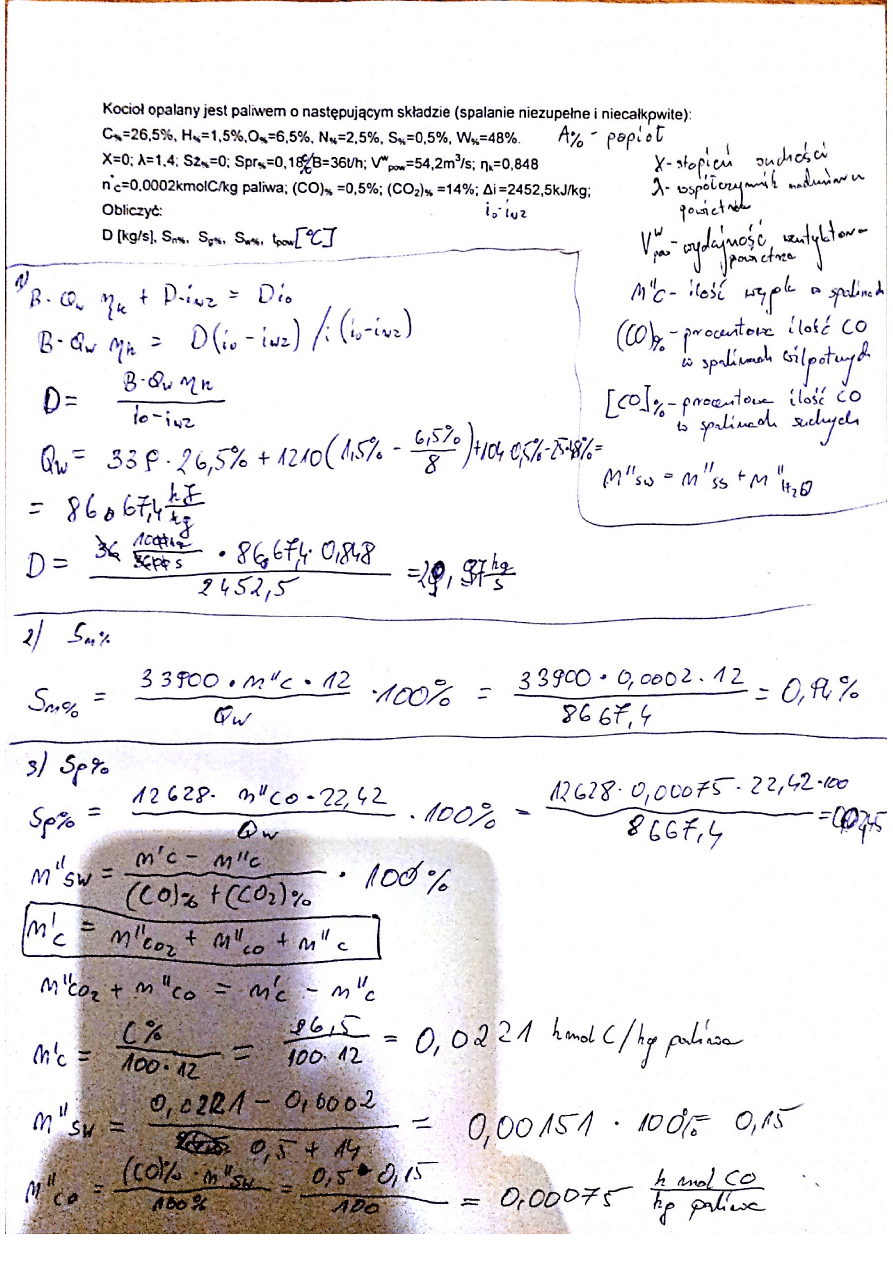 Kocioł opalany jest paliwem o następującym składzie (spalanie niezupełne i niecałkpwite):
C%=26,5%, H%=1,5%,O%=6,5%, N%=2,5%, S%=0,5%, W%=48%. A% - popiół
X=0; λ=1,4; Sż%=0; Spr%=0,18% B=36t/h; Vʷpow=54,2m³/s; ηk=0,848
n''c=0,0002kmolC/kg paliwa; (CO)% =0,5%; (CO₂)% =14%; Δi =2452,5kJ/kg;
i₀-iwz
Obliczyć:
D [kg/s], Sn%, Sg%, Sw%, tpow[°C]
X-stopień suchości
λ-współczynnik nadmiaru
powietrza
Vʷpow-wydajność wentylatora
powietrza
n''c - ilość węgla w spalinach
(CO)% - procentowa ilość CO
w spalinach wilgotnych
[CO]% - procentowa ilość CO
w spalinach suchych
n''sw = n''ss + n''H₂O
1)
B·Qw ηk + D·iwz = Di₀
B·Qw ηk = D(i₀ - iwz) /:(i₀-iwz)
D= B·Qw ηk / i₀-iwz
Qw = 339·26,5% + 1210(1,5% - 6,5%/8)+104·0,5%-25·48%=
= 8667,4 kJ/kg
D = 36 1000kg/3600s · 8667,4·0,848 / 2452,5 =29,97 kg/s
2) Sn%
Sn% = 33900·n''c·12 / Qw ·100% = 33900·0,0002·12 / 8667,4 = 0,94%
3) Sg%
Sg% = 12628· n''co·22,42 / Qw ·100% = 12628·0,00075·22,42·100 / 8667,4
n''sw = n'c - n''c / (CO)% + (CO₂)% · 100%
n'c = n''co₂ + n''co + n''c
n''co₂ + n''co = n'c - n''c
n'c = C% / 100·12 = 26,5 / 100·12 = 0,0221 kmol C/kg paliwa
n''sw = 0,0221 - 0,0002 / 0,5 + 14 = 0,00151 · 100%= 0,15
n''co = (CO)%·n''sw / 100% = 0,5·0,15 / 100 = 0,00075 kmol CO / kg paliwa